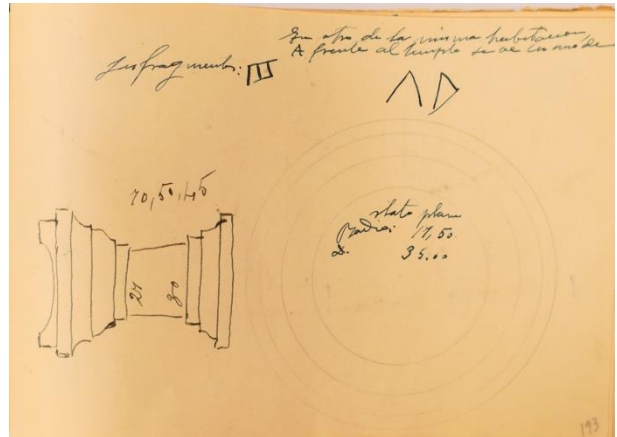 En otro de la misma habitacion
A frente al templo se ve
fragmentos: III
ΛD
70,50
plato plano
Radio: 17,50.
D. 35.00
27
30
193